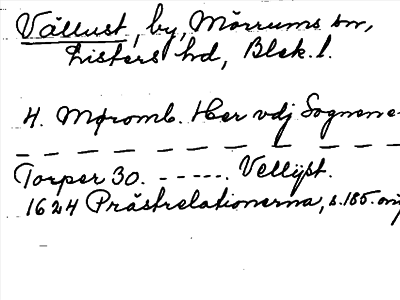 Vällust, by, Mörrums sn,
Listers hd, Blek. l.
4. Møromb. Her vdj Sognene
— — — — — — — — — —
Torper 30. ------. Vellÿst.
1624 Prästrelationerna, s. 185.